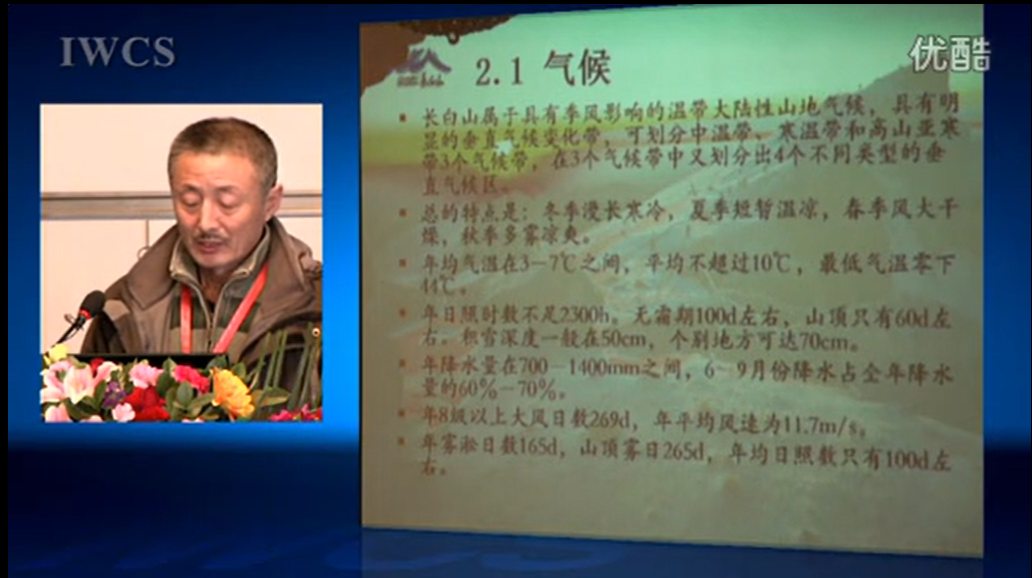 IWCS
优酷
2.1 气候
长白山属于具有季风影响的温带大陆性山地气候，具有明
显的垂直气候变化带，可划分中温带、寒温带和高山亚寒
带3个气候带，在3个气候带中又划分出4个不同类型的垂
直气候区。
总的特点是：冬季漫长寒冷，夏季短暂温凉，春季风大干
燥，秋季多雾凉爽。
年均气温在3-7℃之间，平均不超过10℃，最低气温零下
44℃。
年日照时数不足2300h。无霜期100d左右，山顶只有60d左
右。积雪深度一般在50cm，个别地方可达70cm。
年降水量在700-1400mm之间，6-9月份降水占全年降水
量的60%-70%。
年8级以上大风日数269d，年平均风速为11.7m/s。
年雾淞日数165d，山顶雾日265d，年均日照数只有100d左
右。